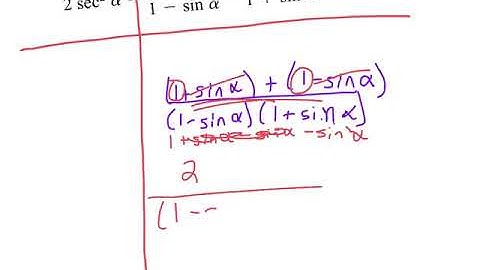 2 sec² α
1 − sin α
(1+sin α) + (1−sin α)
(1−sin α) (1+sin α)
1+sin α − sin α − sin² α
2
(1 −